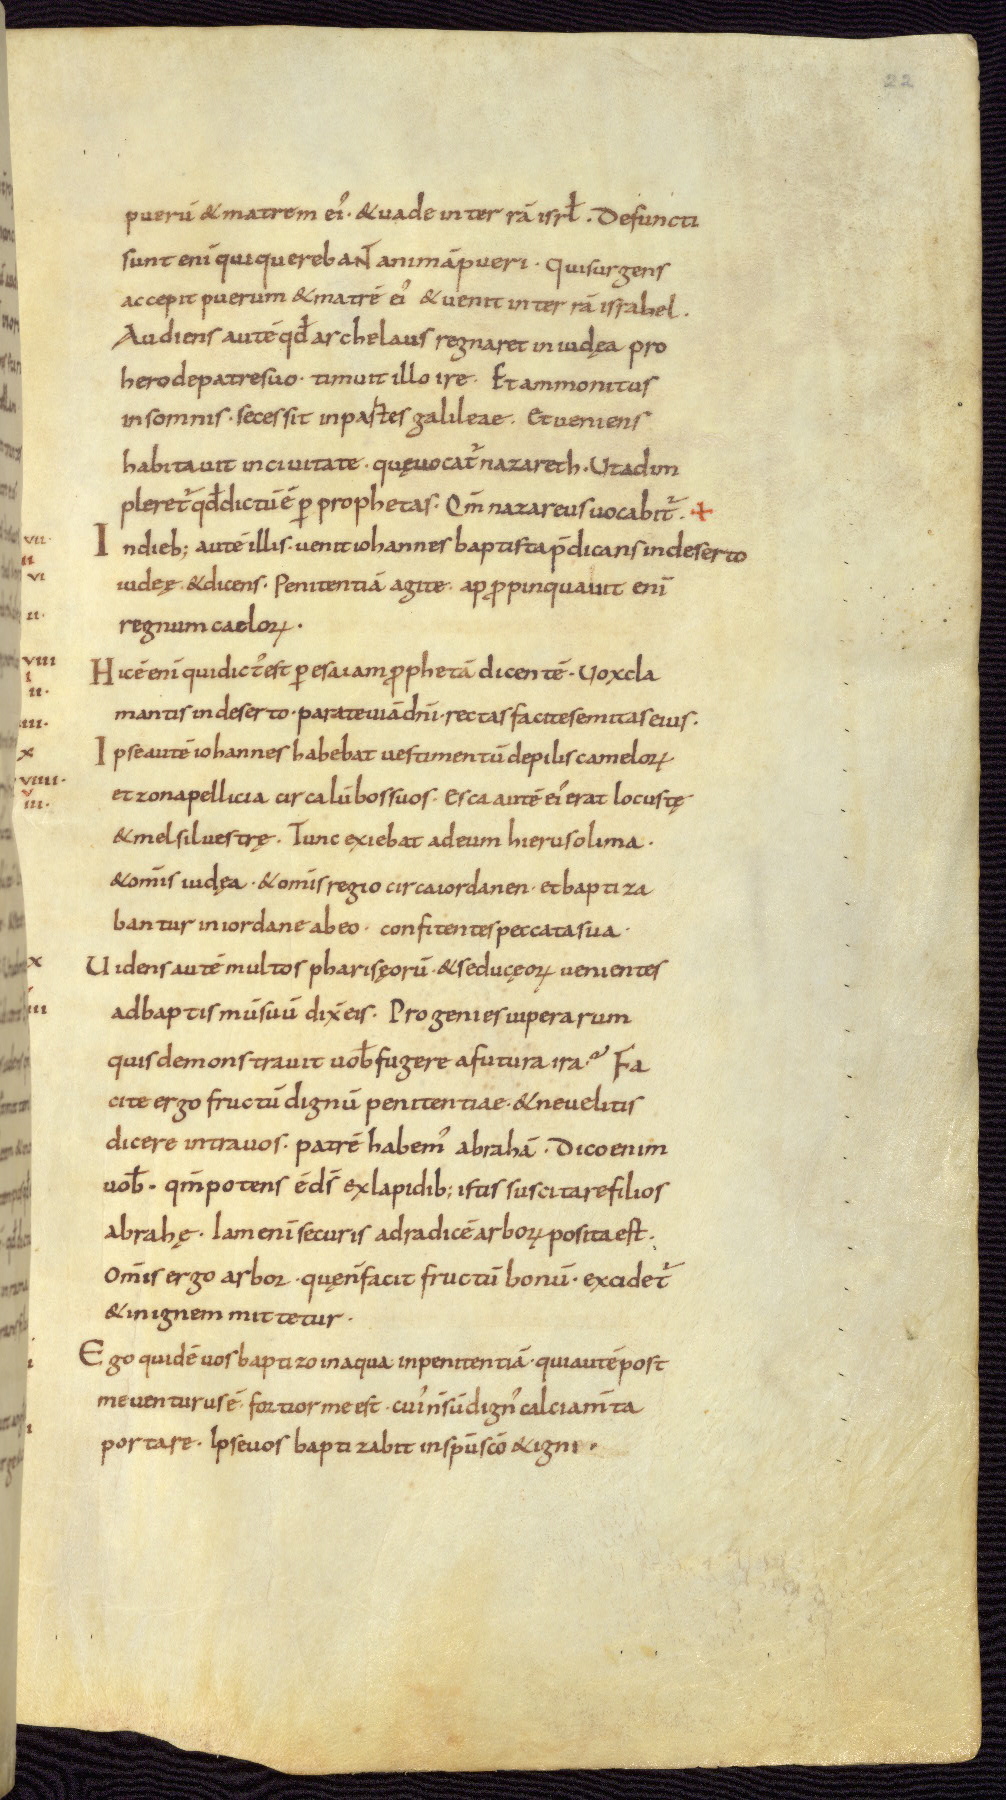 22
puerū & matrem ei᾽. & uade in terrā isrł. Defuncti
sunt enī qui querebanт̄ animā pueri. Qui surgens
accepit puerum & matrē ei᾽ & uenit in terrā israhel.
Audiens autē qđ archelaus regnaret in iudęa pro
herode patre suo. timuit illo ire. Et ammonitus
in somnis. secessit in partes galileae. Et ueniens
habitauit in ciuitate. quę uocat᾽ nazareth. Ut adim
pleret᾽ qđ dictū ē ꝑ prophetas. Qm̄ nazareus uocabit᾽. +
vii.
ii
In dieb; autē illis. uenit iohannes baptista p̄dicans in deserto
vi
iudęę. & dicens. Penitentiā agite. appꝓpinquauit enī
ii.
regnum caeloꝝ.
viii
i
ii.
Hic ē enī qui dict᾽ est ꝑ esaiam ꝓphetā dicentē. Uox cla
iii.
mantis in deserto. parate uiā dn̄i. rectas facite semitas eius.
x
Ipse autē iohannes habebat uestimentū de pilis cameloꝝ
viiii.
v
iii.
et zona pellicia circa lūbos suos. Esca autē ei᾽ erat locustę
& mel siluestrę. Tunc exiebat ad eum hierusolima.
& om̄is iudęa. & om̄is regio circa iordanen. et baptiza
bantur in iordane ab eo. confitentes peccata sua.
x
Uidens autē multos pharisęorū. & seducęoꝝ uenientes
iii
ad baptismū suū dix̄ eis. Progenies uiperarum
quis demonstrauit uob̄ fugere a futura ira? Fa
cite ergo fructū dignū penitentiae. & ne uelitis
dicere intra uos. patrē habem᾽ abrahā. Dico enim
uob̄. qm̄ potens ē ds̄ ex lapidib; istis suscitare filios
abrahę. Iam enī securis ad radicē arboꝝ posita est.
Om̄is ergo arbor. quę n̄ facit fructū bonū. excidet᾽
& in ignem mittetur.
Ego quidē uos baptizo in aqua in penitentiā. qui autē post
me uenturus ē. fortior me est. cui᾽ n̄ sū dign᾽ calciam̄ta
portare. Ipse uos baptizabit in sp̄u sc̄o & igni.